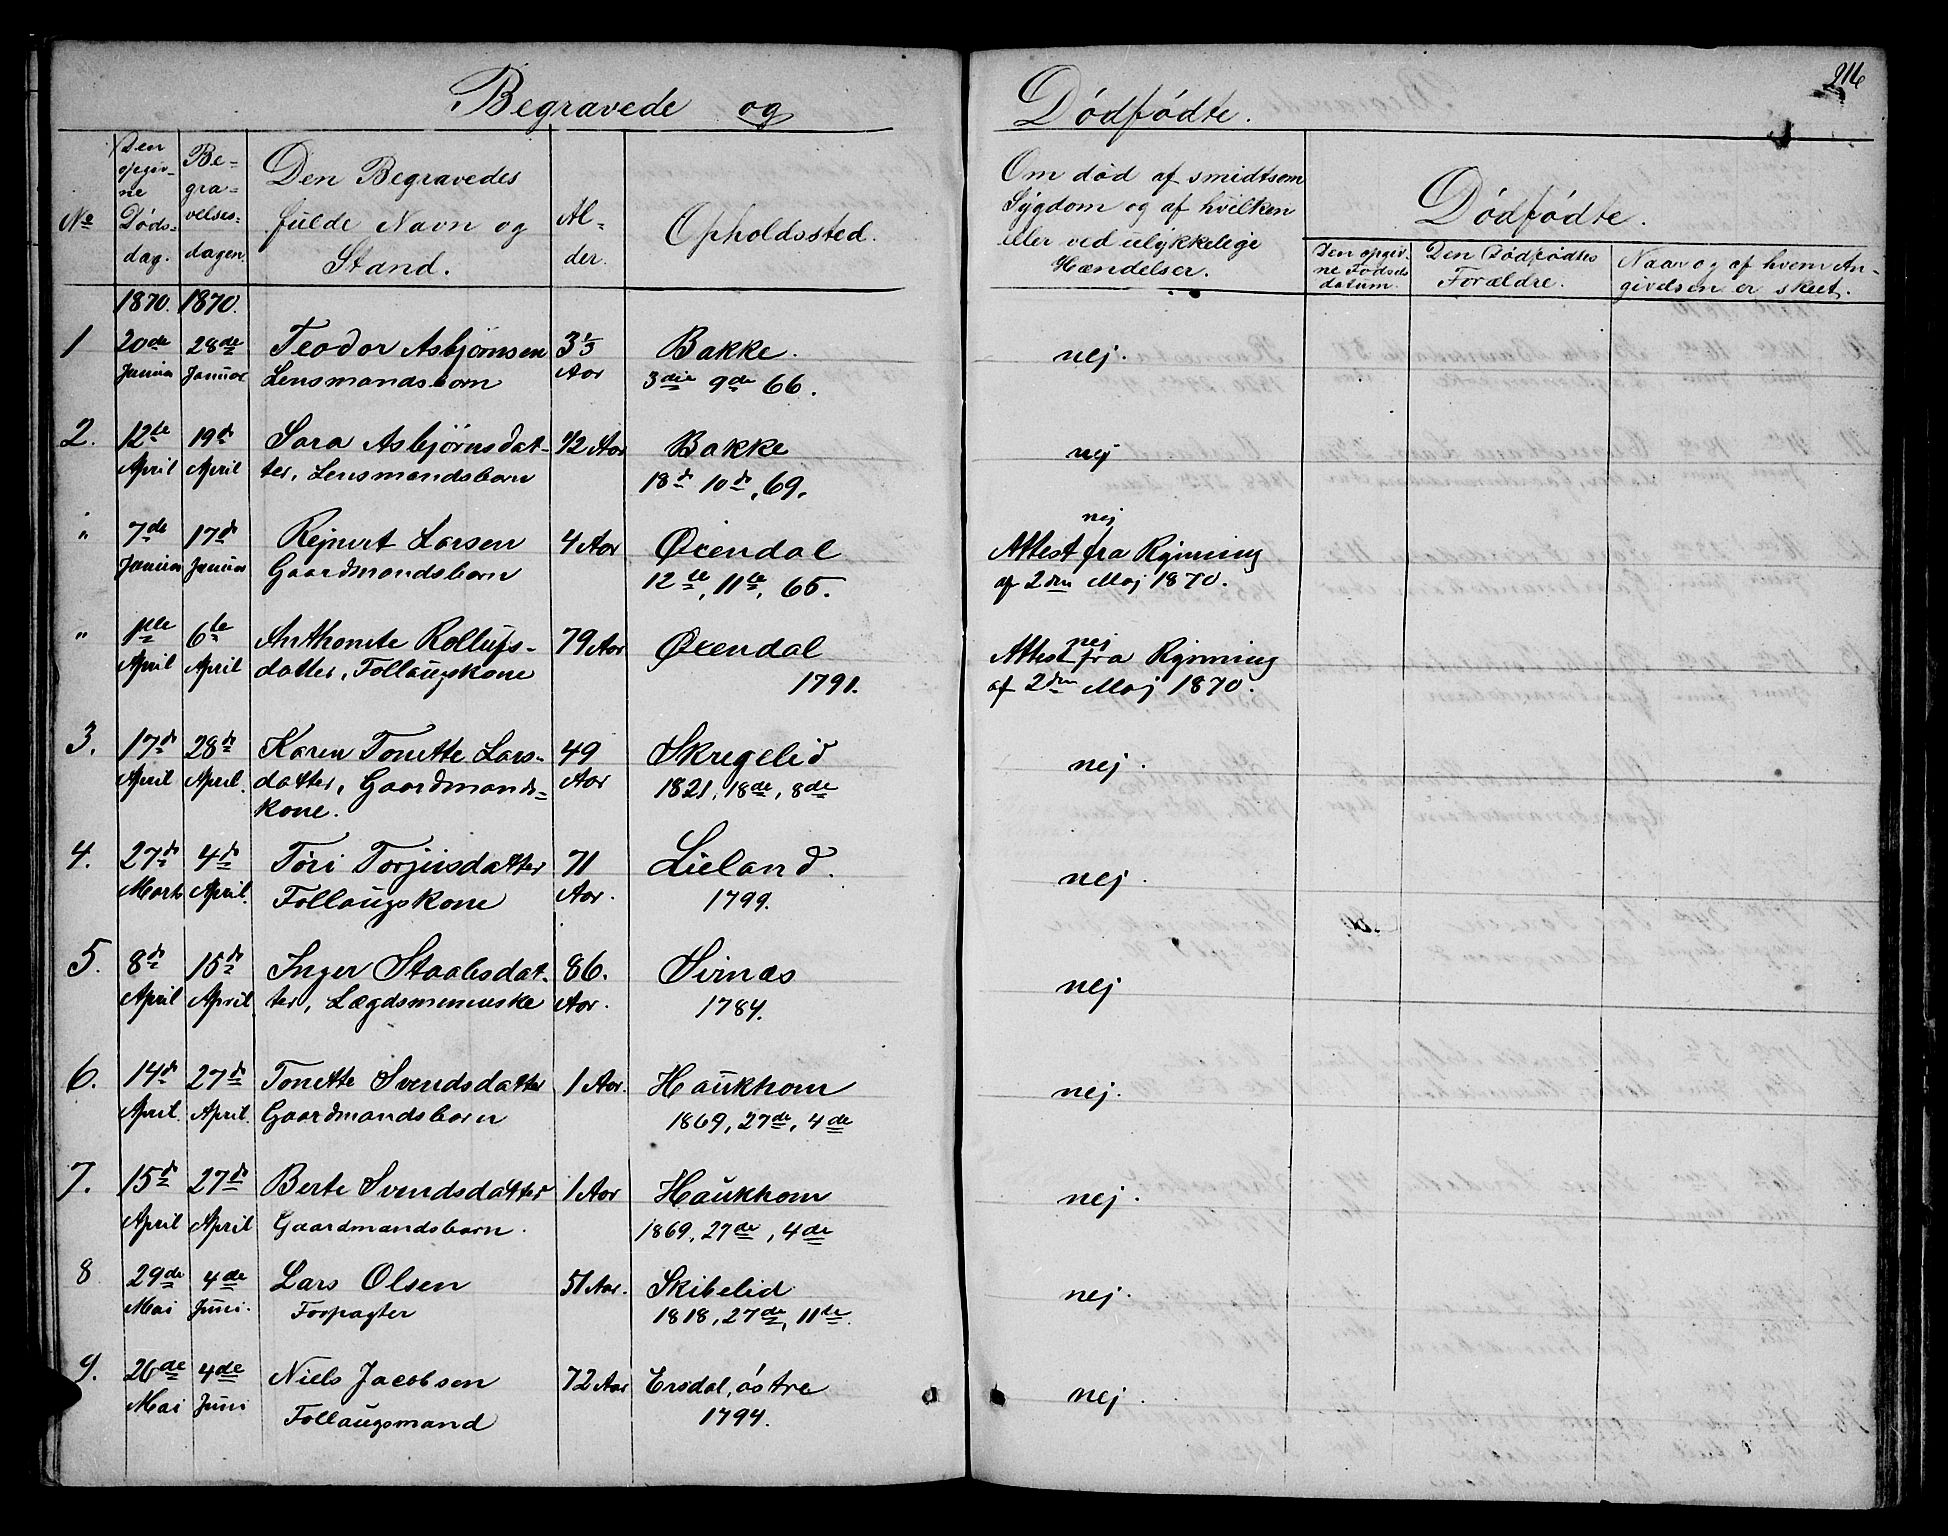 Begravede og Dødfødte.
216
No
Den opgivne Dødsdag.
Begravelsesdagen.
Den Begravedes fulde Navn og Stand.
Alder.
Opholdssted.
Om død af smidtsom Sygdom og af hvilken eller ved ulykkelige Hændelser.
Dødfødte.
Den opgivne Fødselsdatum.
Den Dødfødtes Forældre.
Naar og af hvem Angivelsen er skeet.
1870. 1870.
1 20de 28de Teodor Asbjørnsen 3 1/3 Bakke. nej.
Januar Januar Lensmandsbarn Aar 3die 9de 66.
2. 12te 19d Sara Asbjørnsdat- 1/2 Aar Bakke nej
April April ter, Lensmandsbarn 18d 10d, 69.
" 7de 17d Rejnert Larsen 4 Aar Øxendal nej Attest fra Rynning
Januar Januar Gaardmandsbarn 12te, 11te, 65. af 2den Maj 1870.
" 1ste 6te Anthonete Rollufs- 79 Aar Øxendal nej Attest fra Rynning
April April datter, Follaugskone 1791. af 2den Maj 1870.
3. 17d 28d Karen Tonette Lars- 49 Skregelid nej.
April April. datter, Gaardmands- Aar 1821, 18de, 8de
kone.
4. 27d 4d Tori Torjusdatter 71 Lieland. nej.
Marts April. Follaugskone Aar. 1799.
5. 8d 15d Inger Staalesdat- 86. Sirnæs nej
April April ter, Lægdsmenneske Aar. 1784.
6. 14d 27d Tonette Svendsdatter 1 Aar. Haukhom nej.
April. April. Gaardmandsbarn 1869, 27de, 4de
7. 15d 27d Berte Svendsdatter 1 Aar Haukhom nej.
April April Gaardmandsbarn. 1869, 27de, 4de
8 29de 4de Lars Olsen 51 Aar. Skibelid nej.
Mai Juni. Forpagter 1818, 27de, 11te.
9. 26de 4de Niels Jacobsen 72 Aar Ersdal, østre nej.
Mai Juni Follaugsmand 1794.